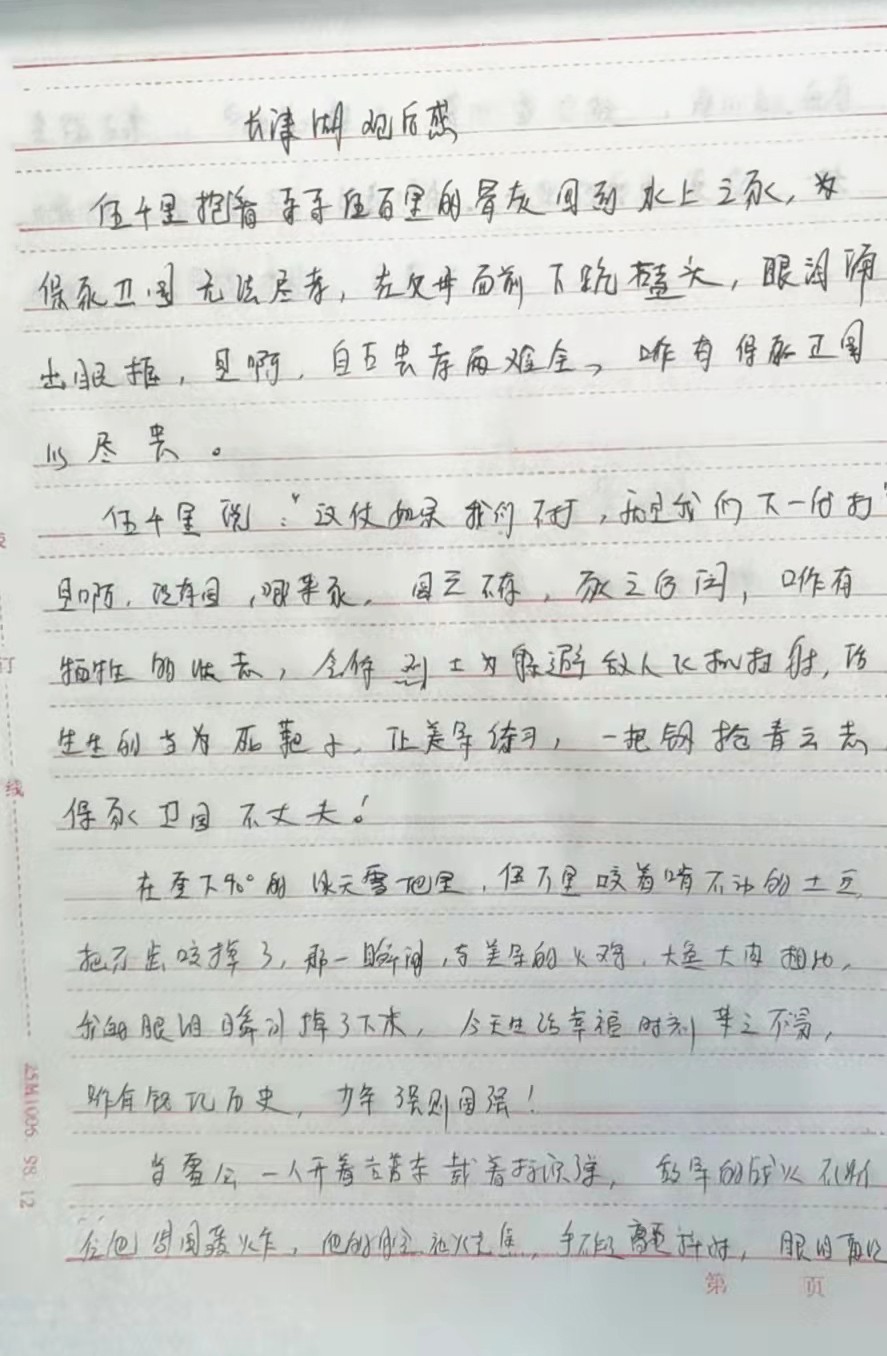 长津湖观后感
伍千里抱着哥哥伍百里的骨灰回到水上之家，为
保家卫国无法尽孝，在父母面前下跪磕头，眼泪涌
出眼框，是啊，自古忠孝两难全，唯有保家卫国
以尽忠。
伍千里说："这仗如果我们不打，就是我们下一代打"
是啊，没有国，哪来家，国之不存，家之何
牺牲的壮志，全体烈士为躲避敌人飞机扫射，活
生生的当为死靶子，让美军练习，一把钢枪青云志
保家卫国不丈夫！
在零下40°的冰天雪地里，伍万里咬着啃不动的土豆
把牙齿咬掉了，那一瞬间，与美军的火鸡，大鱼大肉相比，
我的眼泪瞬间掉了下来，今天生活幸福时刻来之不易，
唯有铭记历史，少年强则国强！
当雷公一人开着 车载着标识弹，敌军的战火不断
在他周围轰炸，他的 被火 ，手 颤抖 ，眼泪
第 页
订
线
25M1006 98.12